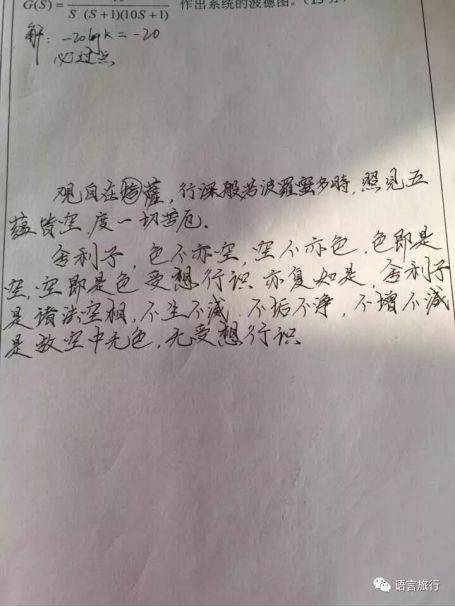 G(S)= S (S+1)(10S+1) 作出系统的波德图。(15分)
解: -20lgk = -20
必过点
观自在菩薩，行深般若波羅蜜多時，照见五
蕴皆空，度一切苦厄。
舍利子，色不亦空，空不亦色，色即是
空，空即是色 受想行识 亦复如是，舍利子
是诸法空相，不生不滅，不垢不净，不增不滅
是故空中无色，无受想行识
语言旅行